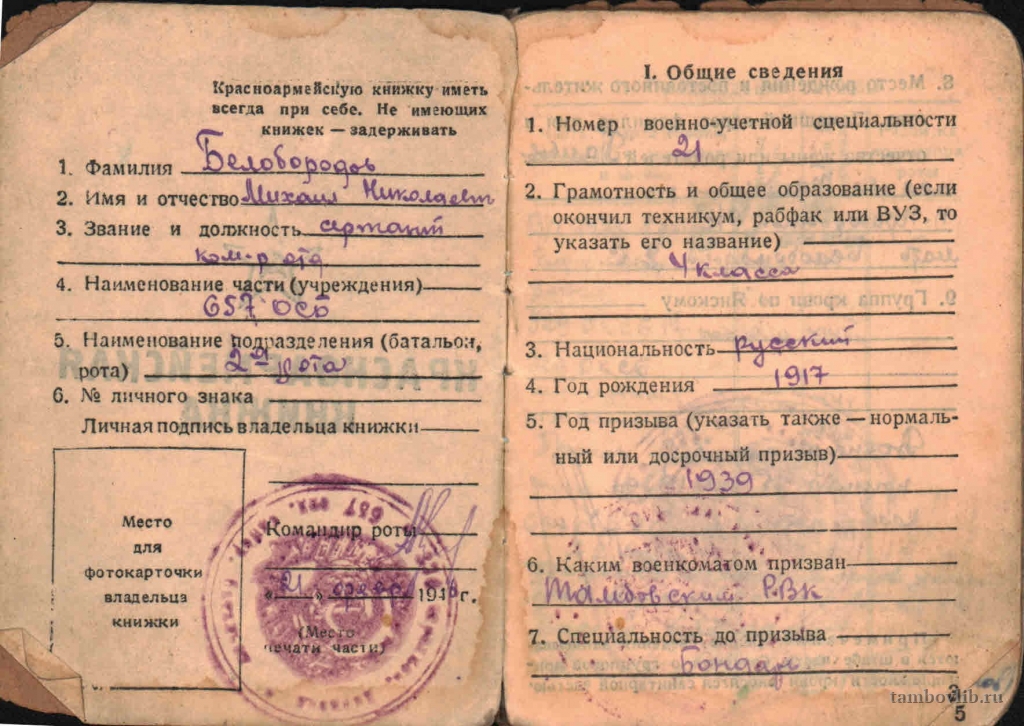 Красноармейскую книжку иметь
всегда при себе. Не имеющих
книжек — задерживать
1. Фамилия Белобородов
2. Имя и отчество Михаил Николаевич
3. Звание и должность сержант
ком-р отд
4. Наименование части (учреждения)
657 ОСБ
5. Наименование подразделения (батальон,
рота) 2-я рота
6. № личного знака
Личная подпись владельца книжки
Место
для
фотокарточки
владельца
книжки
Командир роты
„21„ 194 г.
(Место
печати части)
I. Общие сведения
1. Номер военно-учетной специальности
21
2. Грамотность и общее образование (если
окончил техникум, рабфак или ВУЗ, то
указать его название)
4 класса
3. Национальность русский
4. Год рождения 1917
5. Год призыва (указать также — нормаль-
ный или досрочный призыв)
1939
6. Каким военкоматом призван
Тамбовский РВК
7. Специальность до призыва
tambovlib.ru
5